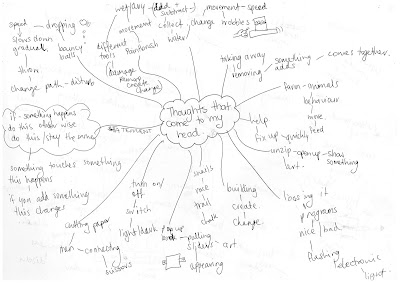 speed - dropping
slows down
gradual.
bouncy
balls
shrink
change path - disturb
different
tools
movement
Paintbrush
movement - speed
collect - change
water
damage
remove
create
change
taking away
removing
something
adds
comes together.
Thoughts that
come to my
head.
if - something happens
do this other wise
do this / stay the same
something touches something
this happens
if you add something
this changes
farm - animals
behaviour
feed
help
fix up - quickly
unzip - open up - show
art - something
cutting paper
men - connecting
scissors
turn on/
off
switch
light/dark
pop up
book - pulling
sliders - art
appearing
snails
race
trail
chalk
building
create
change.
losing it
programs
nice / bad
flashing
electronic
light